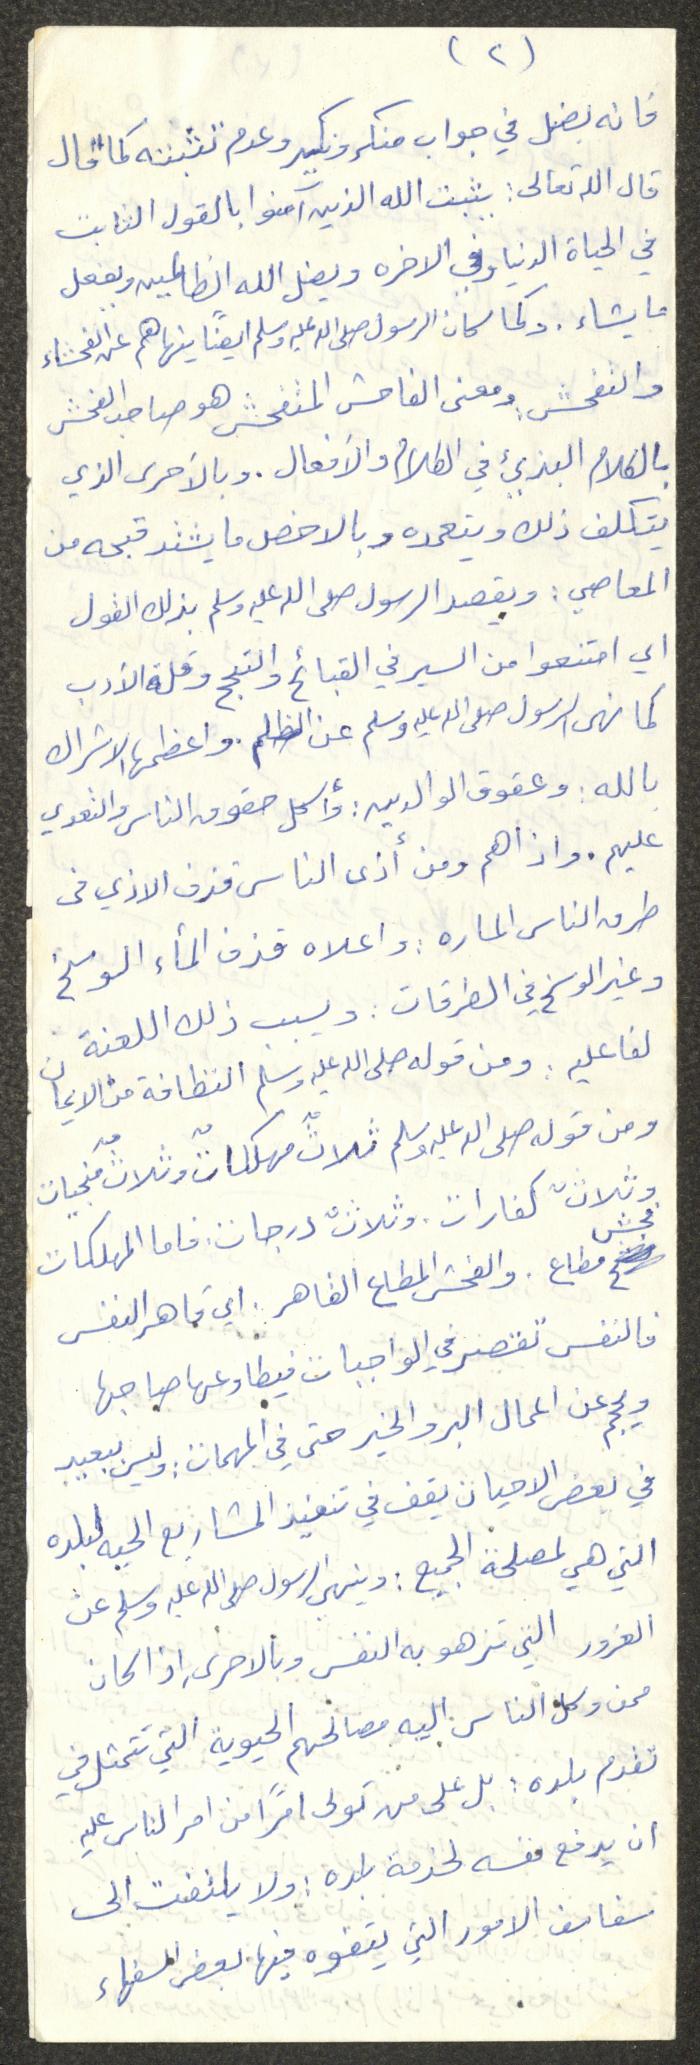 (٢)
فانه يضل في جواب منكر ونكير وعدم تثبته كما قال
قال الله تعالى: يثبت الله الذين آمنوا بالقول الثابت
في الحياة الدنيا وفي الاخره ويضل الله الظالمين ويفعل
ما يشاء. وكما كان الرسول صلى الله عليه وسلم ايضًا ينهاهم عن الفحشاء
والتفحش: ومعنى الفاحش المتفحش هو صاحب الفحش
بالكلام البذيئ في الكلام والأفعال. وبالأحرى الذي
يتكلف ذلك ويتعمده وبالاخص ما يشتد قبحه من
المعاصي: ويقصد الرسول صلى الله عليه وسلم بذلك القول
اي امتنعوا من السير في القبائح والتبجح وقلة الأدب
كما نهى الرسول صلى الله عليه وسلم عن الظلم. واعظمها الاشراك
بالله: وعقوق الوالدين: وأكل حقوق الناس والتعدي
عليهم. واذاهم ومن أذى الناس قذف الاذي في
طرق الناس الماره: واعلاه قذف الماء الوسخ
وغير الوسخ في الطرقات: ويسبب ذلك اللعنة
لفاعليه: ومن قوله صلى الله عليه وسلم النظافة من الايمان
ومن قوله صلى الله عليه وسلم ثلاثٌ مهلكاتٌ وثلاثٌ منجيات
وثلاثٌ كفارات. وثلاثٌ درجات. فاما المهلكات
فحش مطاع. والفحش المطاع القاهر. اي قاهر النفس
فالنفس تقتصر في الواجبات فيطاوعها صاحبها
ويحجم عن اعمال البر والخير حتى في المهمات: وليس ببعيد
في بعض الاحيان يقف في تنفيذ المشاريع الحيه لبلده
التي هي لمصلحة الجميع: وينهى الرسول صلى الله عليه وسلم عن
الغرور التي تزهو به النفس وبالاحرى اذا كان
ممن وكل الناس اليه مصالحهم الحيوية التي تتمثل في
تقدم بلده: بل على من تولى امرًا من امر الناس عليه
ان يدفع نفسه لخدمة بلده: ولا يلتفت الى
سفاسف الامور التي يتفوه فيها بعض السفهاء